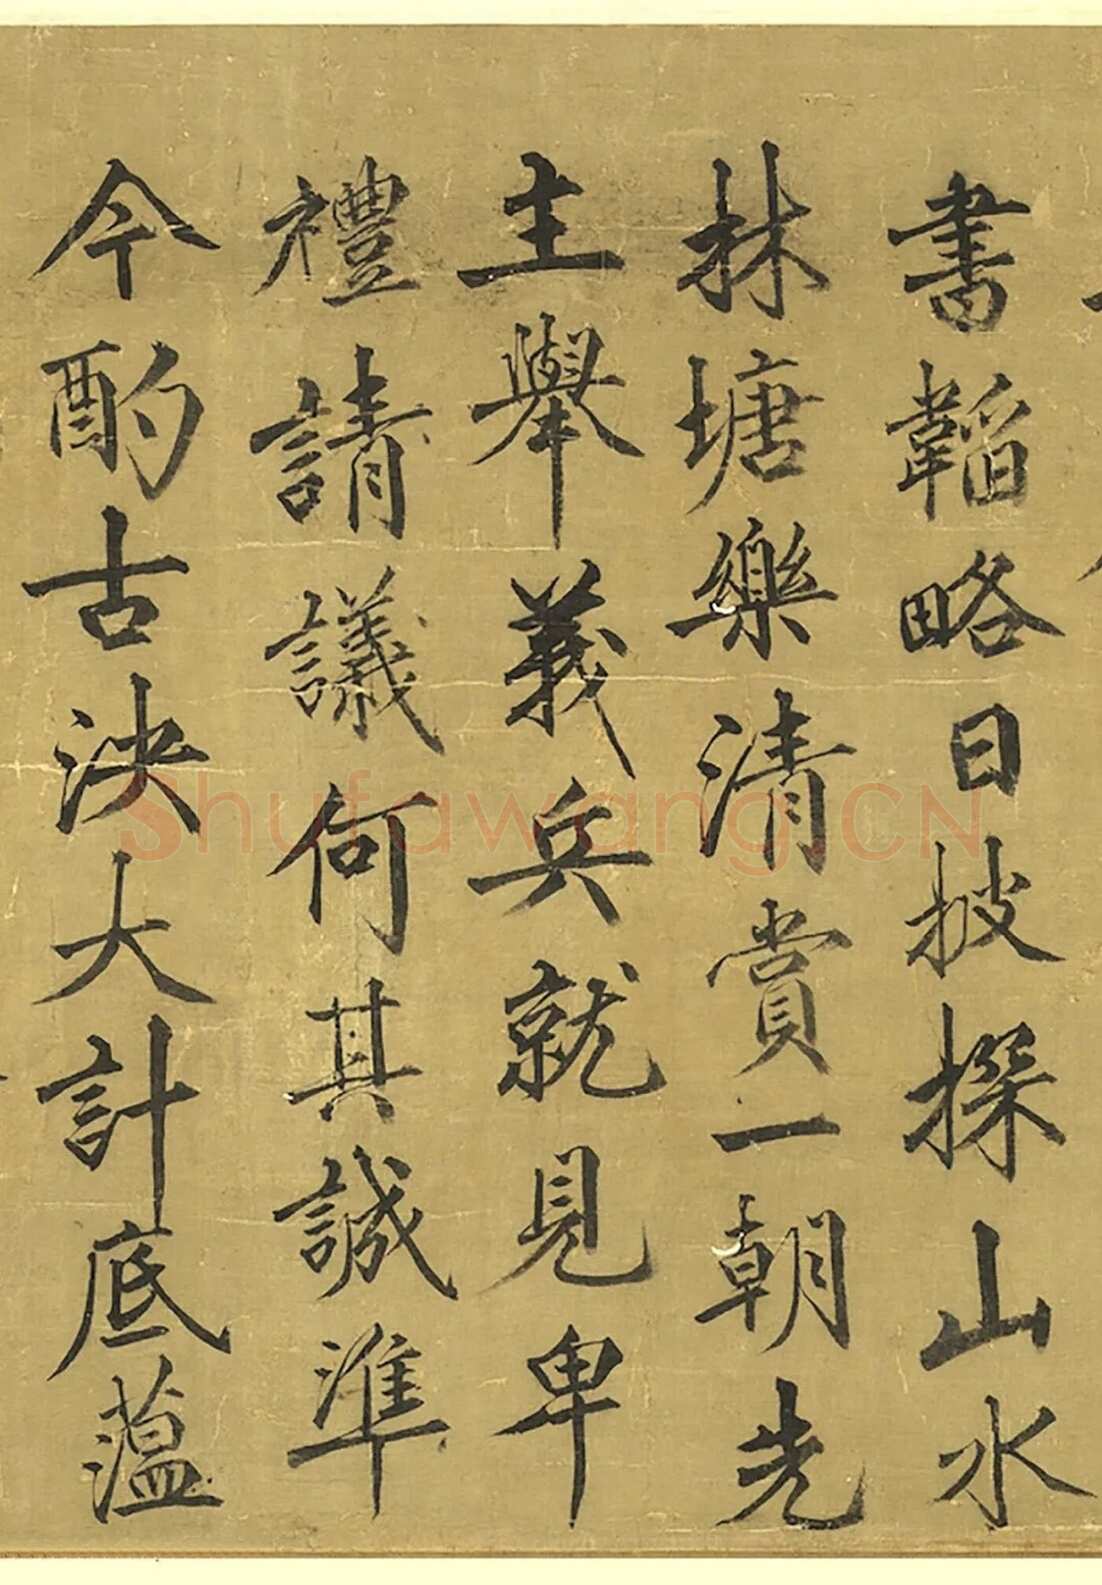 書韜略日披探山水
林塘樂清賞一朝先
主舉義兵就見卑
禮請議何其誠準
今酌古決大計底蕴
Shufawang.CN